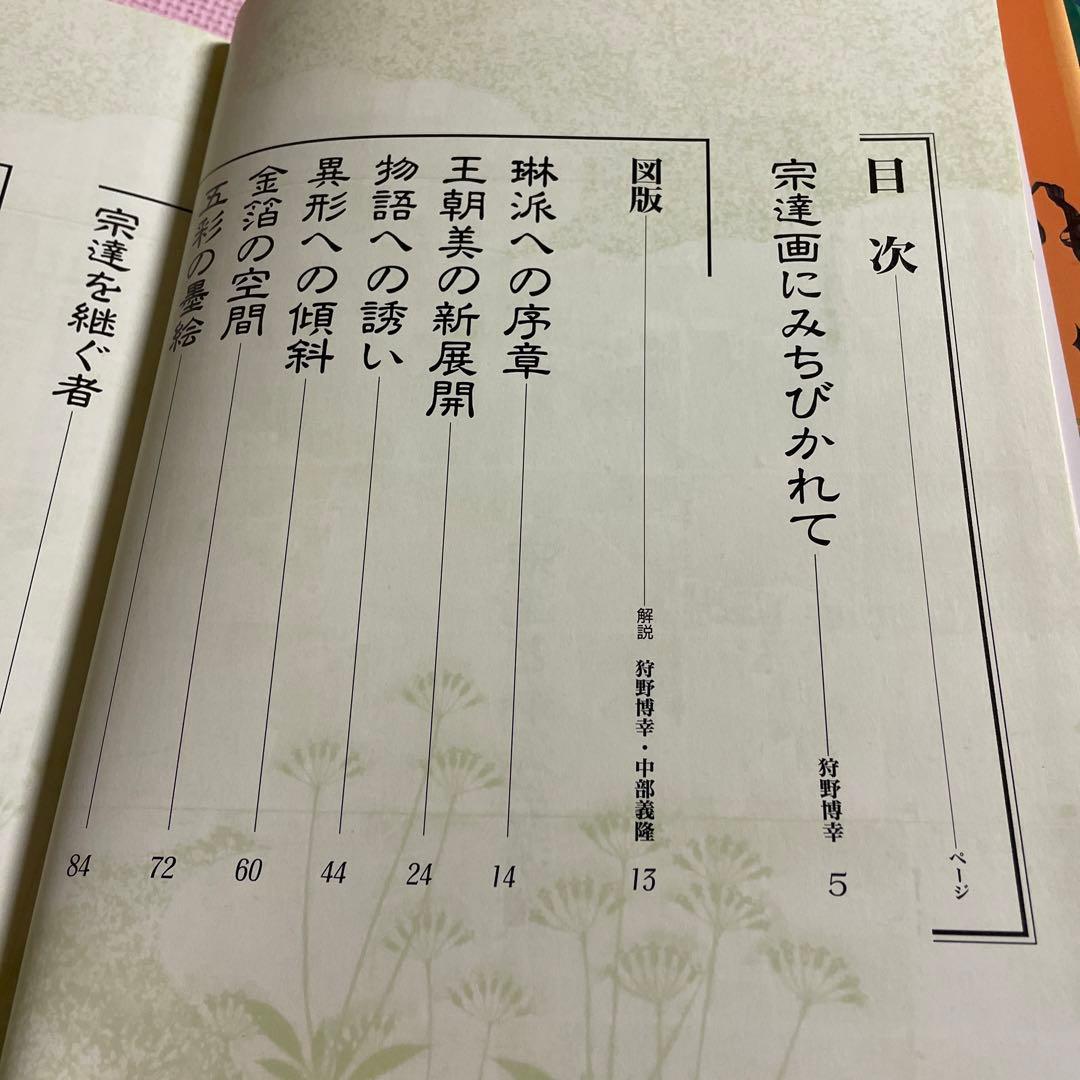 目次 ページ
宗達画にみちびかれて 狩野博幸 5
図版 解説 狩野博幸・中部義隆 13
琳派への序章 14
王朝美の新展開 24
物語への誘い 44
異形への傾斜 60
金箔の空間 72
五彩の墨絵 84
宗達を継ぐ者